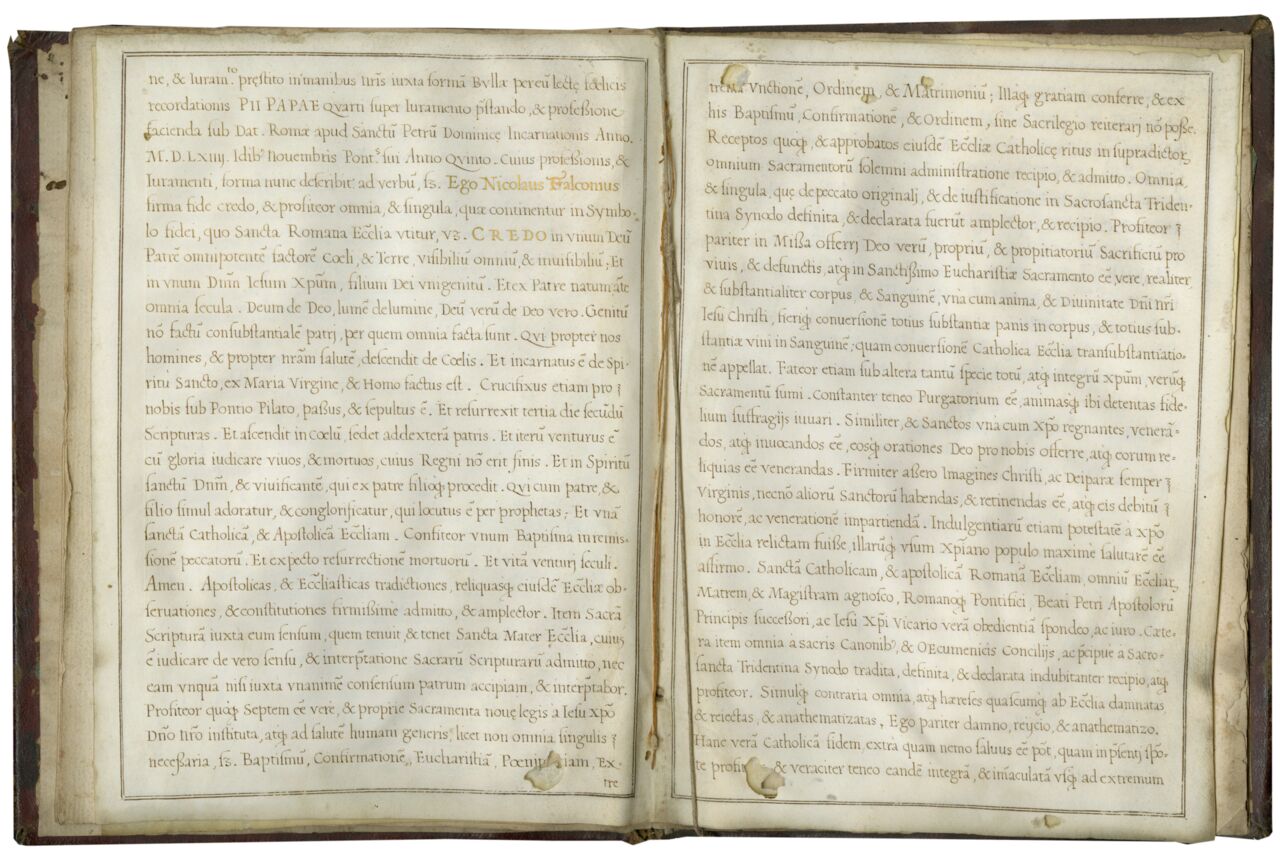 ne, & Iuram.to pręstito in manibus nr̃is iuxta formã Bullæ per eũ lectę fœlicis
recordationis PII PAPAE Quarti super Iuramento p̃stando, & profeßione
facienda sub Dat. Romæ apud Sanctũ Petrũ Dominicę Incarnationis Anno.
M.D.LXIIIJ. Idib9 Nouembris Pont.s sui Anno Qvinto. Cuius profeßionis, &
Iuramenti, forma nunc describit ad verbũ, sꝫ. Ego Nicolaus Falconius
firma fide credo, & profiteor omnia, & singula, quæ continentur in Symbo-
lo fidei, quo Sancta Romana Ecc̃lia vtitur, vꝫ. CREDO in vnum Deũ
Patrẽ omnipotentẽ factorẽ Cœli, & Terre, visibiliũ omniũ, & inuisibiliũ; Et
in vnum Dñm Iesum Xp̃um, filium Dei vnigenitũ. Et ex Patre natum ãte
omnia secula. Deum de Deo, lumẽ de lumine, Deũ verũ de Deo vero. Genitũ
nõ factũ consubstantialẽ patrj, per quem omnia facta sunt. Qvi propter nos
homines, & propter nr̃am salutẽ, descendit de Cœlis. Et incarnatus ẽ de Spi-
ritu Sancto, ex Maria Virgine, & Homo factus est. Crucifixus etiam pro
nobis sub Pontio Pilato, paßus, & sepultus ẽ. Et resurrexit tertia die secũdũ
Scripturas. Et ascendit in Cœlũ, sedet ad dexterã patris. Et iterũ venturus ẽ
cũ gloria iudicare viuos, & mortuos, cuius Regni nõ erit finis. Et in Spiritũ
sanctũ Dñm, & viuificantẽ, qui ex patre filioq̃ procedit. Qvi cum patre, &
filio simul adoratur, & conglorificatur, qui locutus ẽ per prophetas; Et vnã
sanctã Catholicã, & Apostolicã Ecc̃liam. Confiteor vnum Baptisma in remis-
sionẽ peccatorũ. Et expecto resurrectionẽ mortuorũ. Et vitã venturj seculi.
Amen. Apostolicas, & Ecc̃liasticas traditiones, reliquasq̃ eiusdẽ Ecc̃liæ ob-
seruationes, & constitutiones firmißime admitto, & amplector. Item Sacrã
Scripturã iuxta eum sensum, quem tenuit, & tenet Sancta Mater Ecc̃lia, cuius
ẽ iudicare de vero sensu, & interp̃tatione Sacrarũ Scripturarũ admitto, nec
eam vnquã nisi iuxta vnanimẽ consensum patrum accipiam, & interp̃tabor.
Profiteor quoq̃ Septem eẽ verè, & propriè Sacramenta nouę legis a Iesu Xp̃o
Dño nr̃o instituta, atq̃ ad salutẽ humani generis, licet non omnia singulis
necessaria, sꝫ. Baptismũ, Confirmationẽ, Eucharistiã, Ex-
tre
trema Vnctionẽ, Ordinem, & Matrimoniũ; Illaq̃ gratiam conferre, & ex
his Baptismũ, Confirmationẽ, & Ordinem, sine Sacrilegio reiterarj nõ poße.
Receptos quoq̃, & approbatos eiusdẽ Ecc̃liæ Catholicę ritus in supradictoꝝ
omnium Sacramentorũ solemni administratione recipio, & admitto. Omnia,
& singula, quę de peccato originalj, & de iustificatione in Sacrosancta Triden-
tina Synodo definita, & declarata fuerũt amplector, & recipio. Profiteor
pariter in Mißa offerrj Deo verũ, propriũ, & propitiatoriũ Sacrificiũ pro
viuis, & defunctis, atq̃ in Sanctißimo Eucharistiæ Sacramento eẽ verè, realiter
& substantialiter corpus, & Sanguinẽ, vna cum anima, & Diuinitate Dñi nr̃i
Iesu Christi, fieriq̃ conuersionẽ totius substantiæ panis in corpus, & totius sub-
stantiæ vini in Sanguinẽ; quam conuersionẽ Catholica Ecc̃lia transubstantiatio-
nẽ appellat. Fateor etiam sub altera tantũ specie totũ, atq̃ integrũ Xp̃um, verũq̃
Sacramentũ sumi. Constanter teneo Purgatorium eẽ, animasq̃ ibi detentas fide-
lium suffragijs iuuari. Similiter, & Sanctos vna cum Xp̃o regnantes, venerã-
dos, atq̃ inuocandos eẽ, eosq̃ orationes Deo pro nobis offerre, atq̃ eorum re-
liquias eẽ venerandas. Firmiter aßero Imagines Christi, ac Deiparæ semper
Virginis, necnõ aliorũ Sanctorũ habendas, & retinendas eẽ, atq̃ eis debitũ
honorẽ, ac venerationẽ impartiendã. Indulgentiarũ etiam potestatẽ à Xp̃o
in Ecc̃lia relictam fuiße, illarũq̃ vsum Xp̃iano populo maximè salutarẽ eẽ
affirmo. Sanctã Catholicam, & apostolicã Romanã Ecc̃liam, omniũ Ecc̃liaꝝ
Matrem, & Magistram agnosco, Romanoq̃ Pontifici, Beati Petri Apostolorũ
Principis successori, ac Iesu Xp̃i Vicario verã obedientiã spondeo, ac iuro. Cæte-
ra item omnia à sacris Canonib9, & OEcumenicis Concilijs, ac p̃cipuè à Sacro-
sancta Tridentina Synodo tradita, definita, & declarata indubitanter recipio, atq̃
profiteor. Simulq̃ contraria omnia, atq̃ hæreses quascumq̃ ab Ecc̃lia damnatas
& reiectas, & anathematizatas, Ego pariter damno, reijcio, & anathematizo.
Hanc verã Catholicã fidem, extrà quam nemo saluus eẽ põt, quam in p̃senti spõ-
te & veraciter teneo eandẽ integrã, & im̃aculatã vsq̃ ad extremum